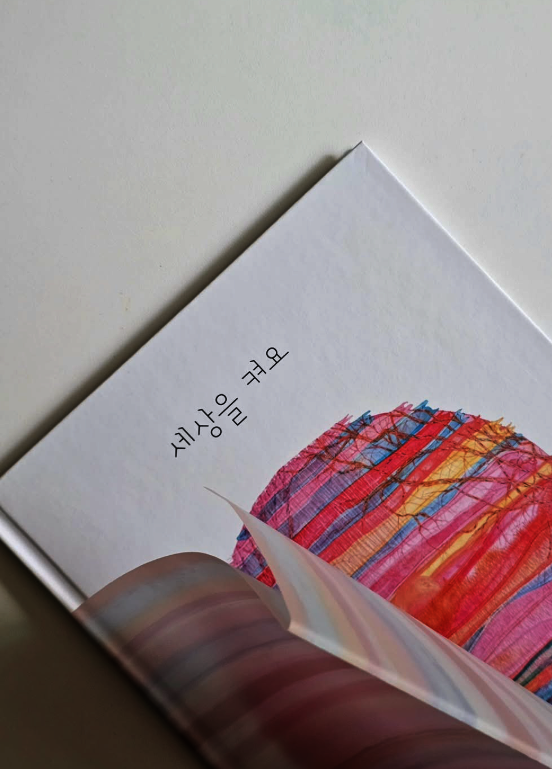 세상을 켜요